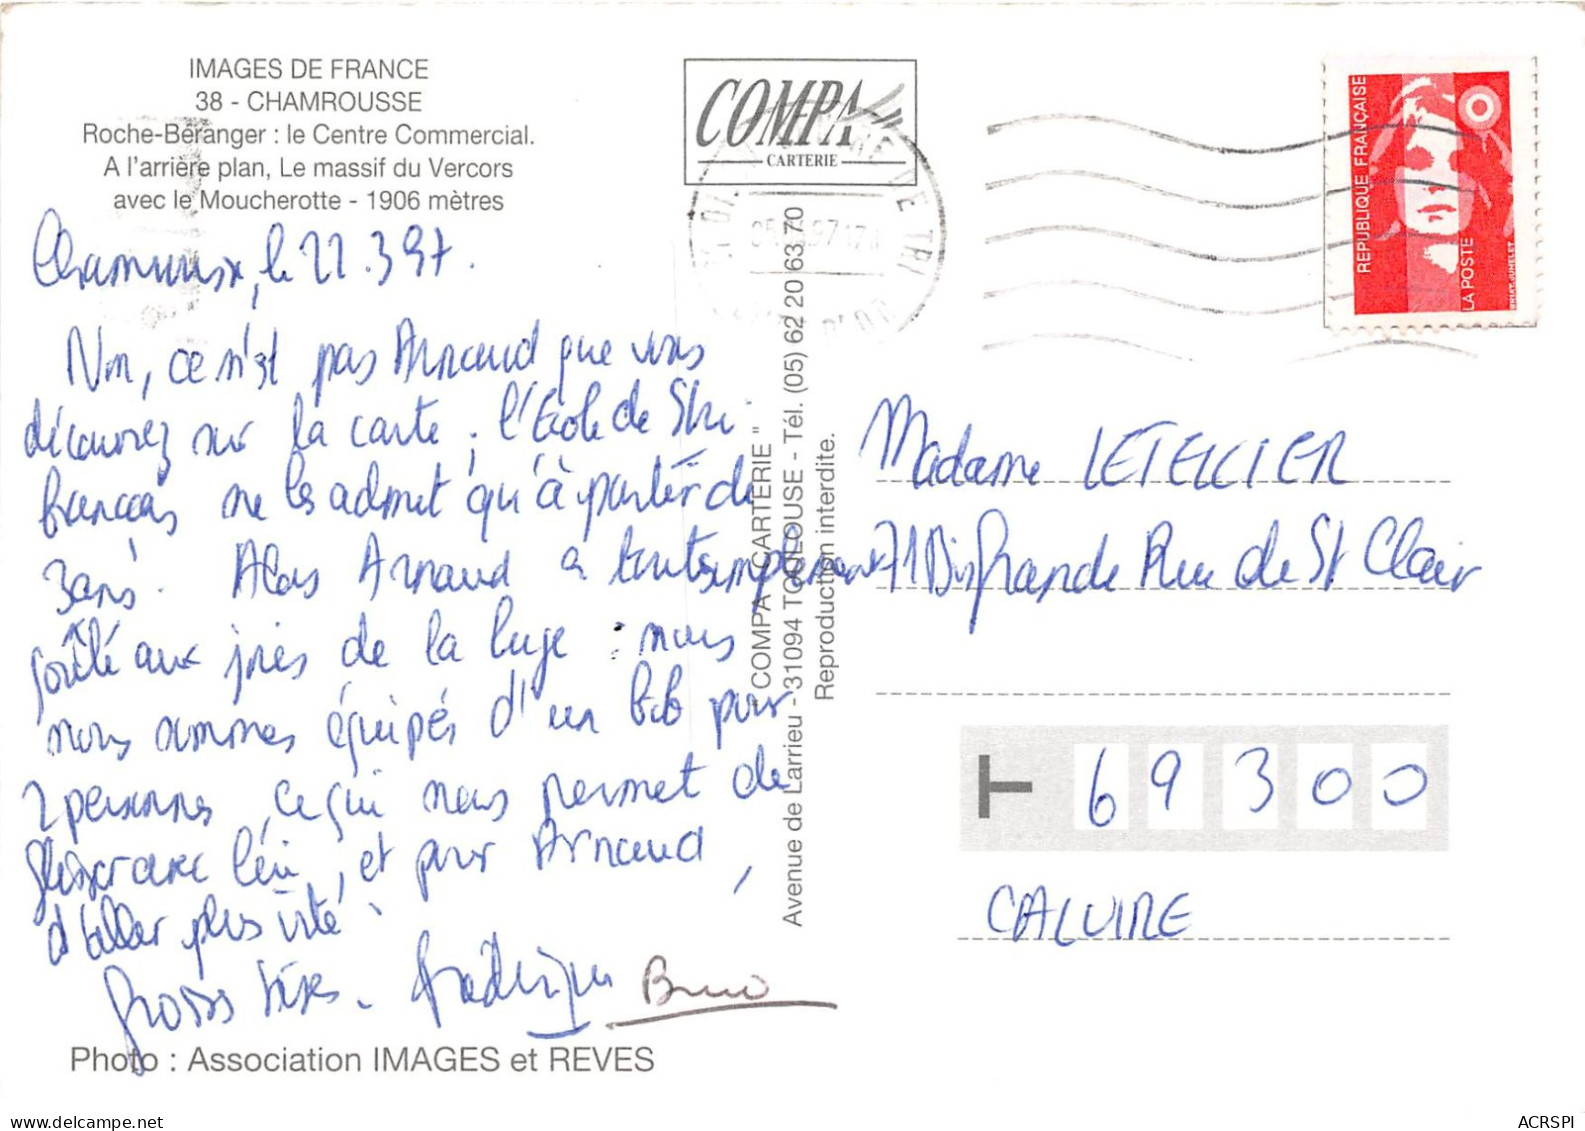 IMAGES DE FRANCE
38 - CHAMROUSSE
Roche-Béranger : le Centre Commercial.
A l'arrière plan, Le massif du Vercors
avec le Moucherotte - 1906 mètres
Chamrousse, le 22.3.97.
Non, ce n'est pas Arnaud que vous
découvrez sur la carte ; l'Ecole de Ski
français ne les admet qu'à partir de
3 ans. Alors Arnaud a tout simplement
goûté aux joies de la luge : nous
nous sommes équipés d'un bob pour
2 personnes, ce qui nous permet de
glisser avec lui, et pour Arnaud,
d'aller plus vite.
Grosses bises. Frédérique Bruno
Photo : Association IMAGES et REVES
COMPA
CARTERIE
COMPA "CARTERIE"
Avenue de Larrieu - 31094 TOULOUSE - Tél. (05) 62 20 63 70
Reproduction interdite.
CENTRE DE TRI
97 17
REPUBLIQUE FRANÇAISE
LA POSTE
BRIAT-JUMELET
Madame LETELLIER
71 Bis Grande Rue de St Clair
T 69300
CALUIRE
ACRSPI